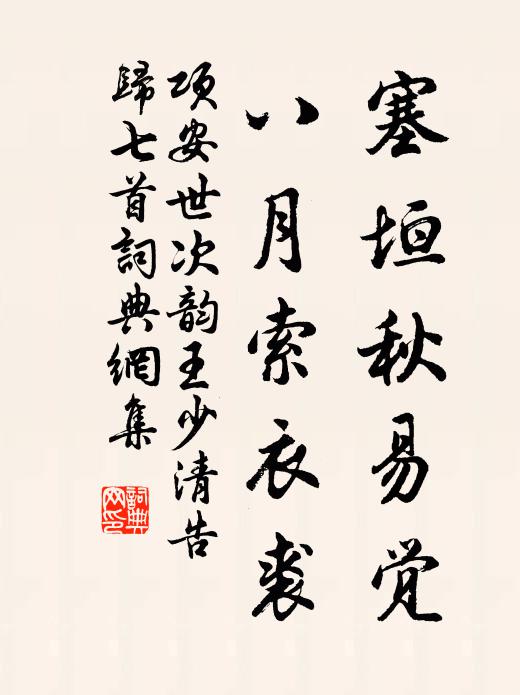 塞垣秋易觉
八月索衣裘
项安世次韵王少清告
歸七首詞典網集
詞典網印